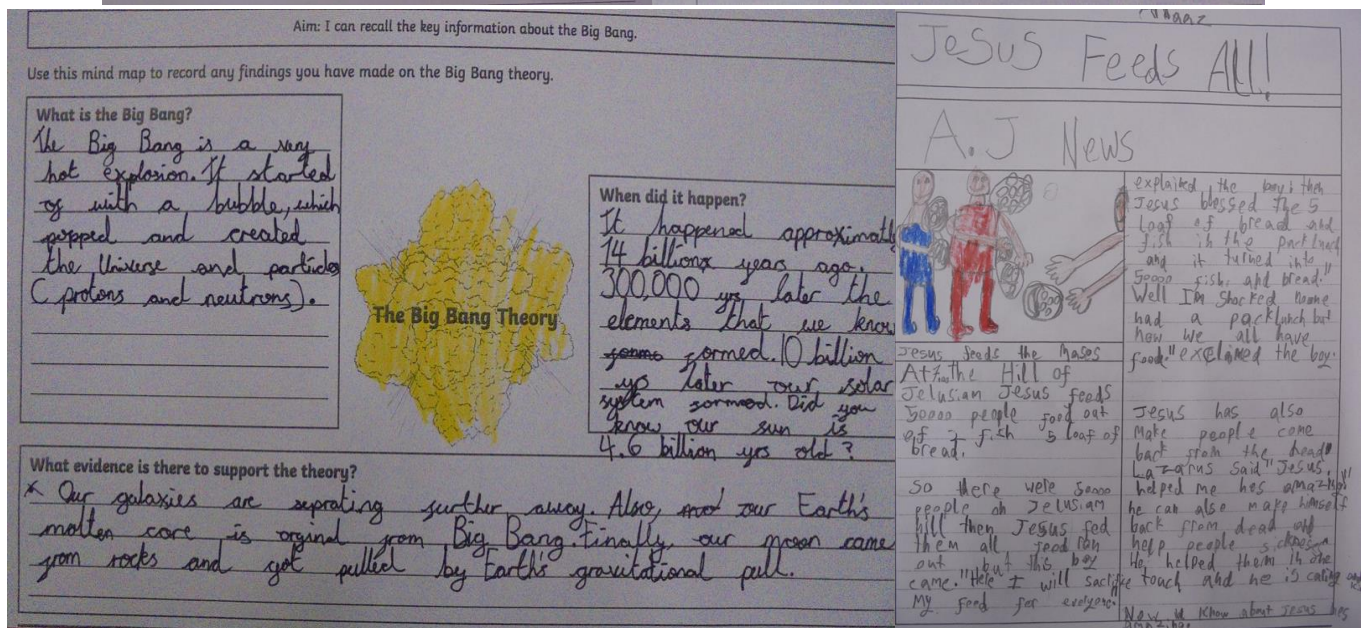 Aim: I can recall the key information about the Big Bang.
Use this mind map to record any findings you have made on the Big Bang theory.
What is the Big Bang?
The Big Bang is a very
hot explosion. It started
of with a bubble, which
popped and created
the Universe and particles
(protons and neutrons).
The Big Bang Theory
When did it happen?
It happened approximatly
14 billion years ago.
300,000 yrs later the
elements that we know
formed. 10 billion
yrs later our solar
system formed. Did you
know our sun is
4.6 billion yrs old?
What evidence is there to support the theory?
* Our galaxies are seprating further away. Also, our Earth's
molten core is orginal from Big Bang. Finally, our moon came
from rocks and got pulled by Earth's gravitational pull.
Jesus Feeds All!
A.J News
Jesus feeds the Mases
At the Hill of
Jelusian Jesus feeds
50000 people food out
of 2 fish 5 loaf of
bread.
So there were 50000
people on Jelusiam
hill then Jesus fed
them all food ran
out but this boy
came. "Here I will sacrifise
My feed for everyone"
explained the boy. then
Jesus blessed the 5
loaf of bread and
fish in the packlunch
and it turned into
50000 fish, and bread."
Well I'm shocked noone
had a packlunch but
now we all have
food." exclaimed the boy.
Jesus has also
make people come
back from the dead
Lazarus said "Jesus,
helped me hes amazing!
he can also make himself
back from dead and
help people
He helped them in one
touch and he is caring and
Now u know about Jesus hes